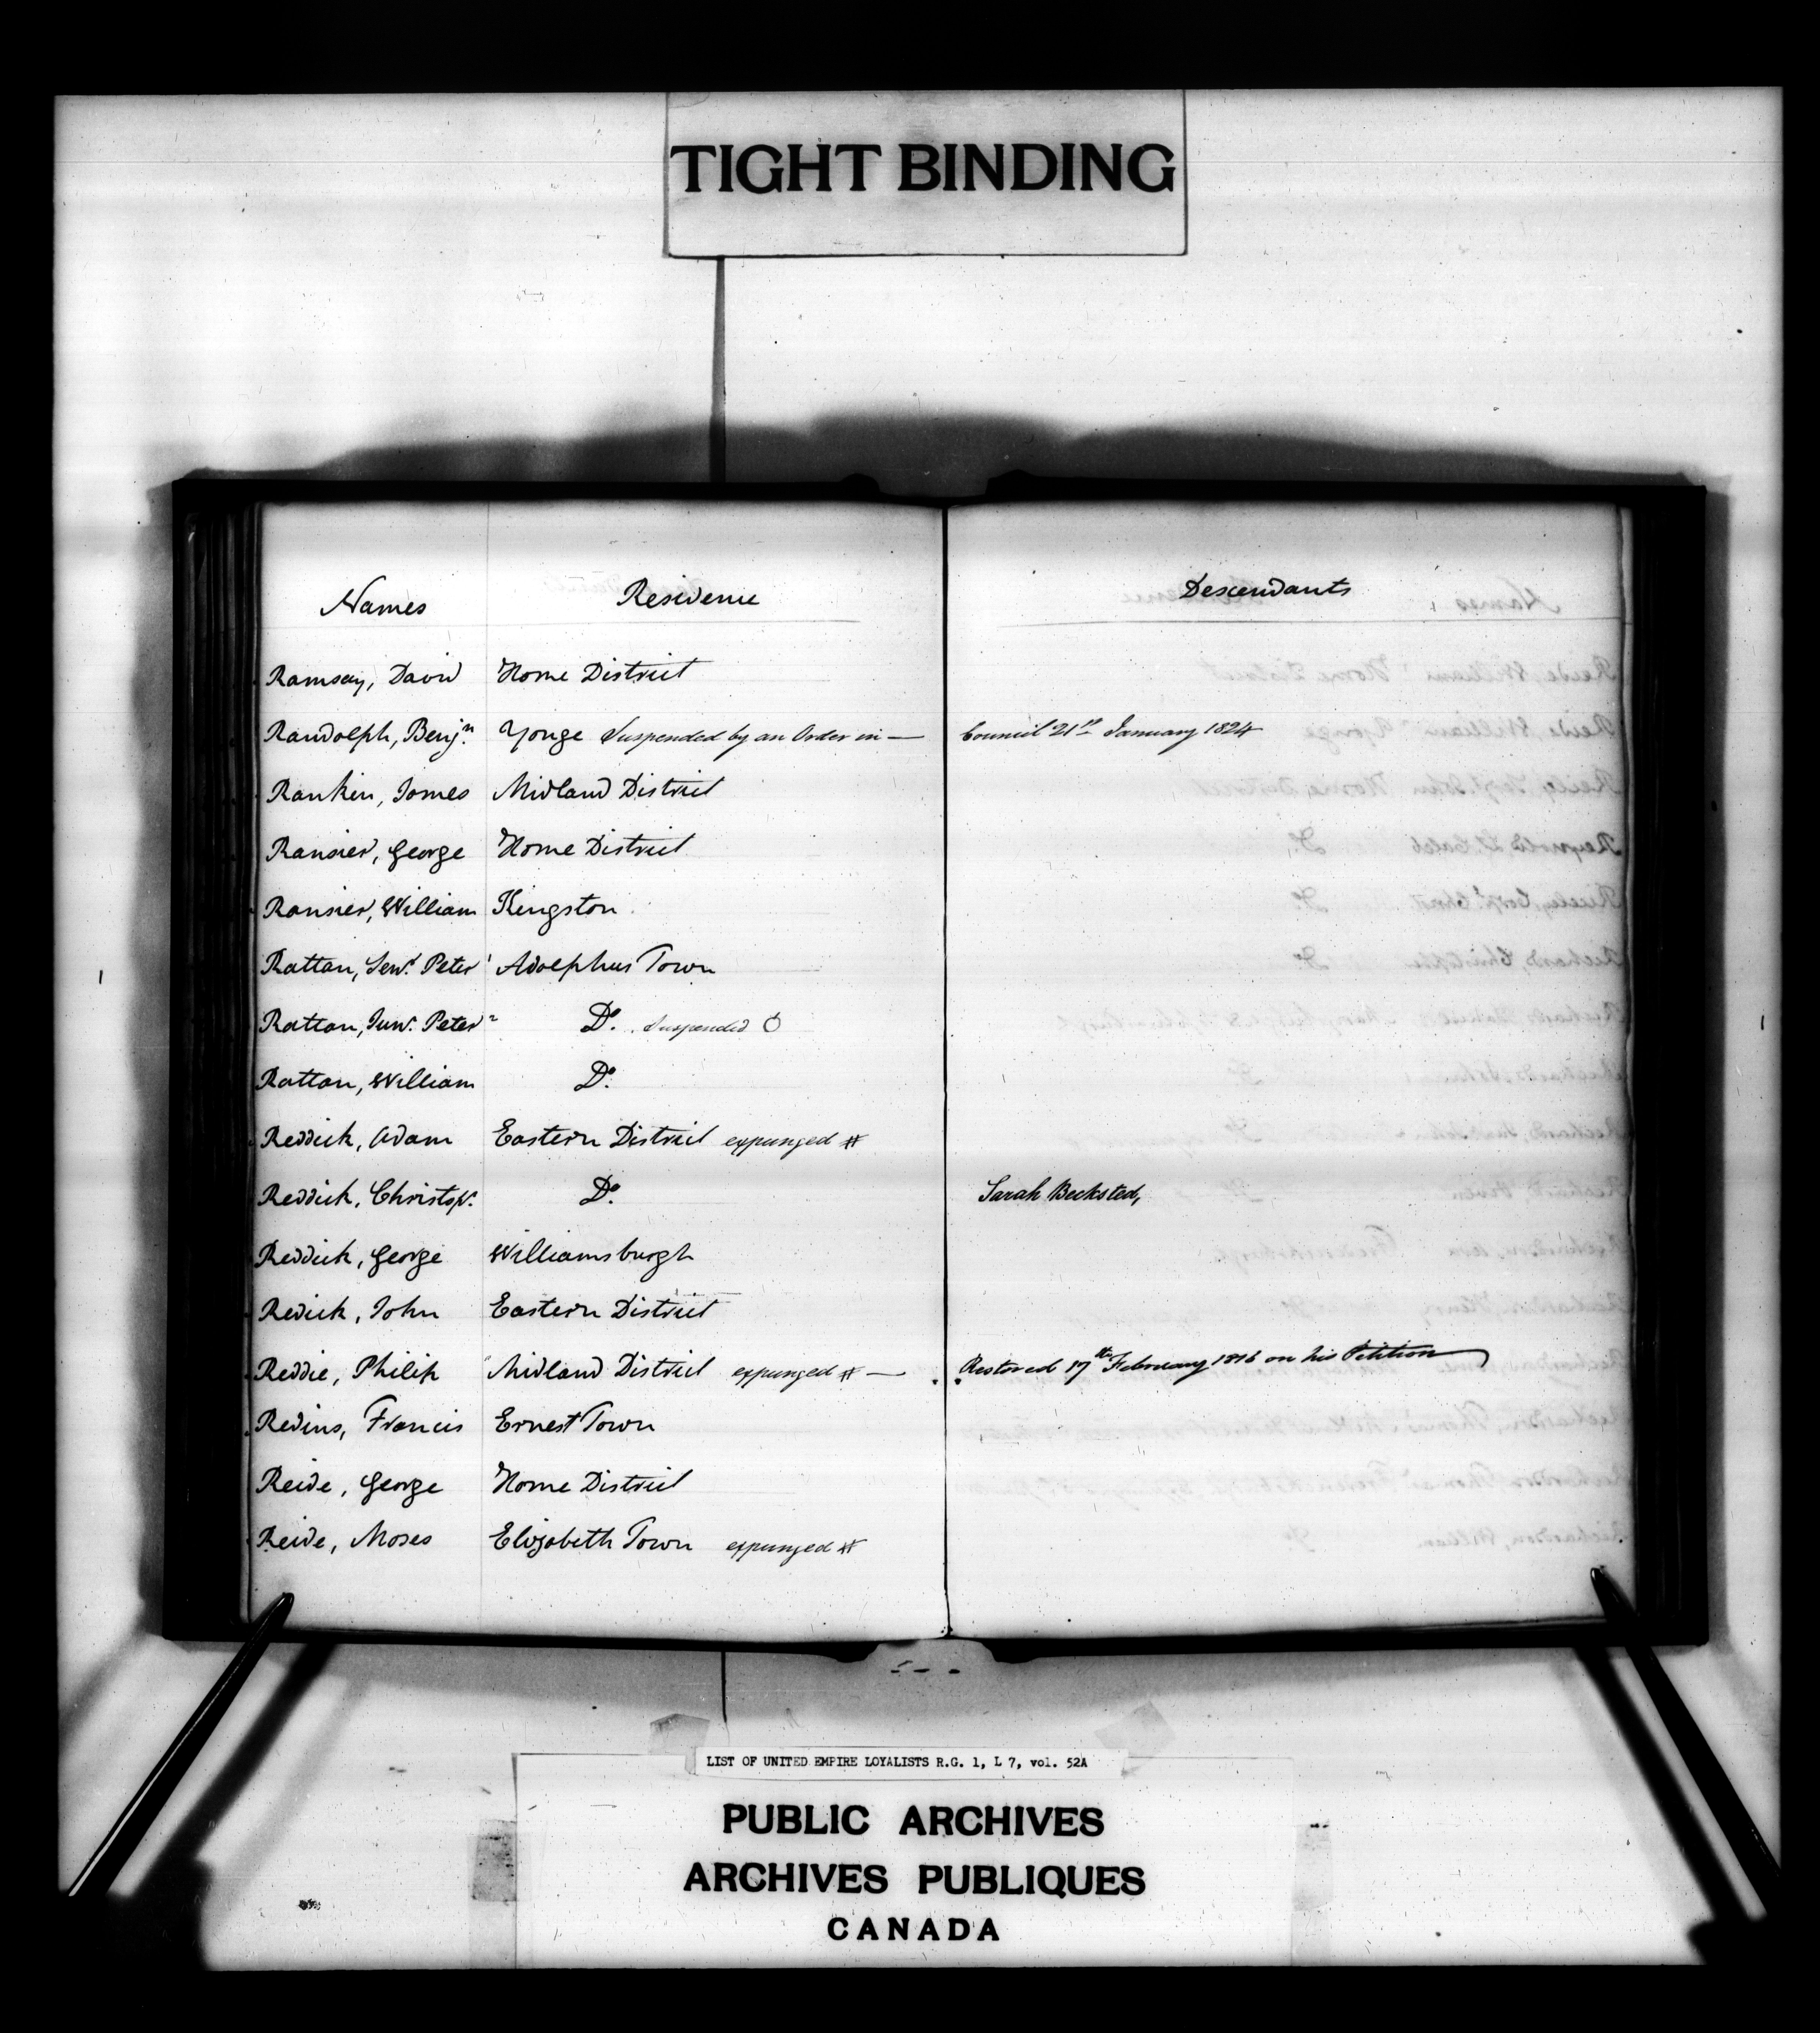 TIGHT BINDING
Names Residence Descendants
Ramsay, David Home District
Randolph, Benjn. Yonge Suspended by an Order in — Council 21st January 1824
Rankin, James Midland District
Ransier, George Home District
Ransier, William Kingston
Rattan, Senr. Peter Adolphus Town
Rattan, Junr. Peter Do. Suspended
Rattan, William Do.
Reddick, Adam Eastern District expunged #
Reddick, Christopr. Do. Sarah Becksted,
Reddick, George Williamsburgh
Redick, John Eastern District
Reddie, Philip Midland District expunged # — Restored 17th February 1816 on his Petition
Redins, Francis Ernest Town
Reide, George Home District
Reide, Moses Elizabeth Town expunged #
LIST OF UNITED EMPIRE LOYALISTS R.G. 1, L 7, vol. 52A
PUBLIC ARCHIVES
ARCHIVES PUBLIQUES
CANADA